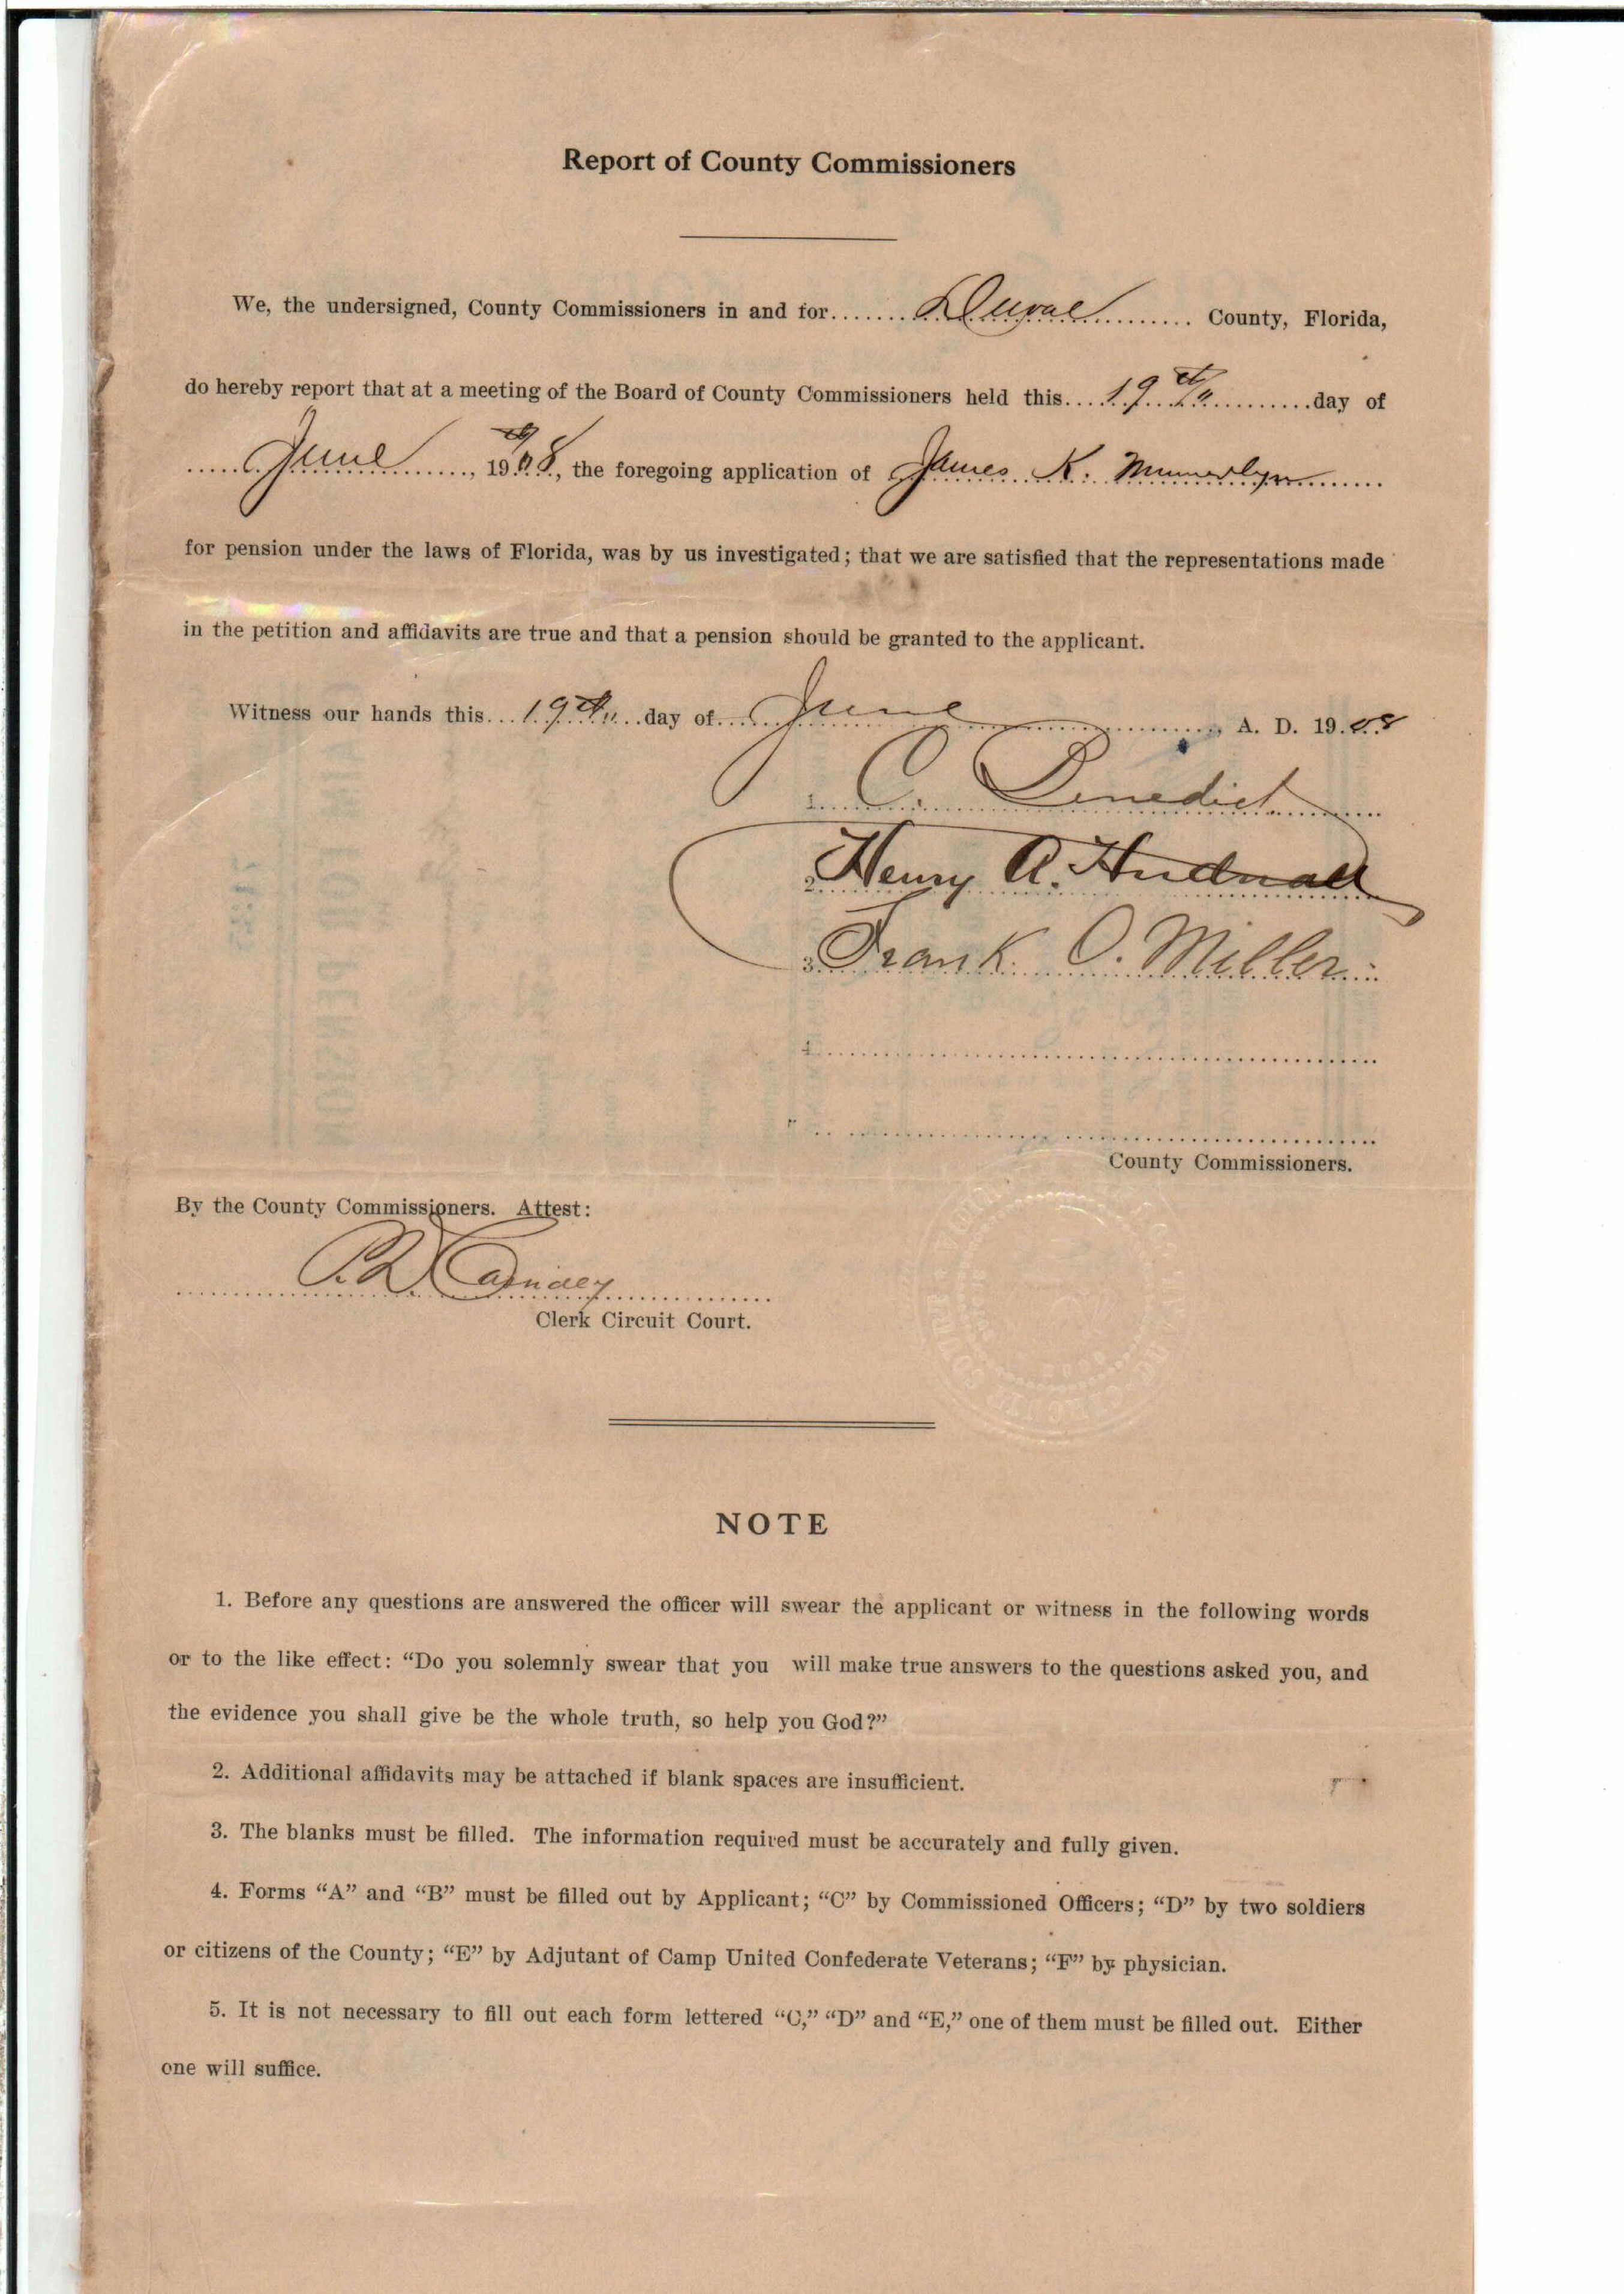 Report of County Commissioners
We, the undersigned, County Commissioners in and for....... Duval ......... County, Florida,
do hereby report that at a meeting of the Board of County Commissioners held this.... 19th ..........day of
..... June ......, 1908, the foregoing application of James K. Munnerlyn ......
for pension under the laws of Florida, was by us investigated; that we are satisfied that the representations made
in the petition and affidavits are true and that a pension should be granted to the applicant.
Witness our hands this... 19th ...day of... June ..........., A. D. 1908
1. C. Benedict
2. Henry A. Hudnall
3. Frank O. Miller
4
County Commissioners.
By the County Commissioners. Attest:
P. D. Cassidey
Clerk Circuit Court.
NOTE
1. Before any questions are answered the officer will swear the applicant or witness in the following words
or to the like effect: “Do you solemnly swear that you will make true answers to the questions asked you, and
the evidence you shall give be the whole truth, so help you God?”
2. Additional affidavits may be attached if blank spaces are insufficient.
3. The blanks must be filled. The information required must be accurately and fully given.
4. Forms “A” and “B” must be filled out by Applicant; “C” by Commissioned Officers; “D” by two soldiers
or citizens of the County; “E” by Adjutant of Camp United Confederate Veterans; “F” by physician.
5. It is not necessary to fill out each form lettered “C,” “D” and “E,” one of them must be filled out. Either
one will suffice.